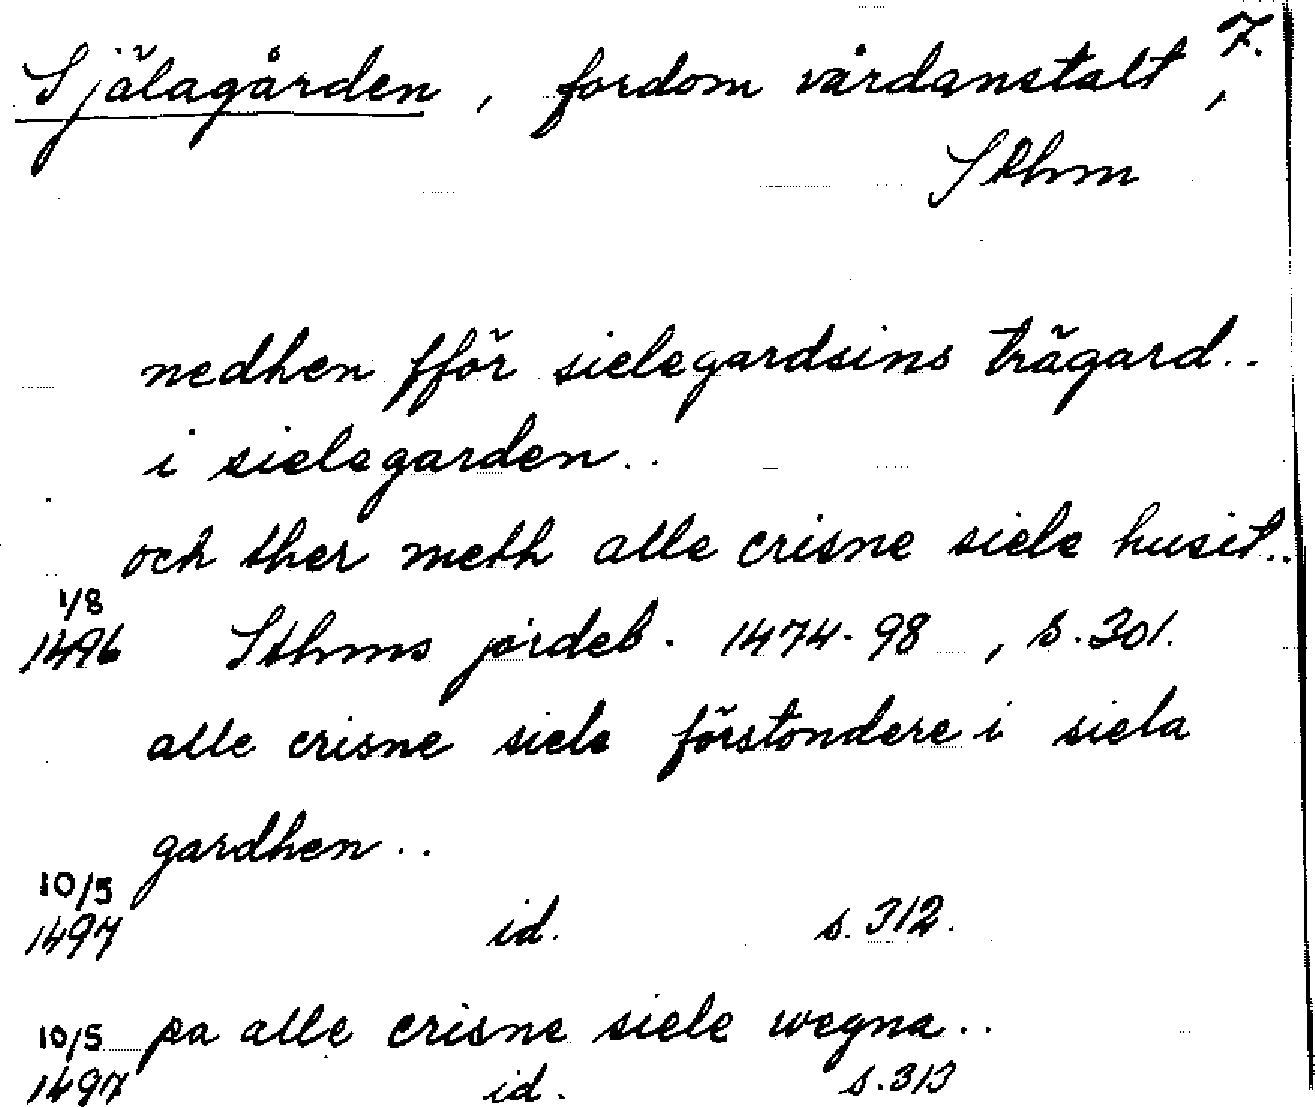 7.
Själagården, fordom vårdanstalt,
Sthm
nedhen fför sielegardsins trägard..
i sielegarden..
och ther meth alle crisne siele husit..
1/8
1496 Sthms jordeb. 1474-98, s.301.
alle crisne siele förstondere i siela
gardhen..
10/5
1497 id. s.312.
10/5 pa alle crisne siele wegna..
1497 id. s.313